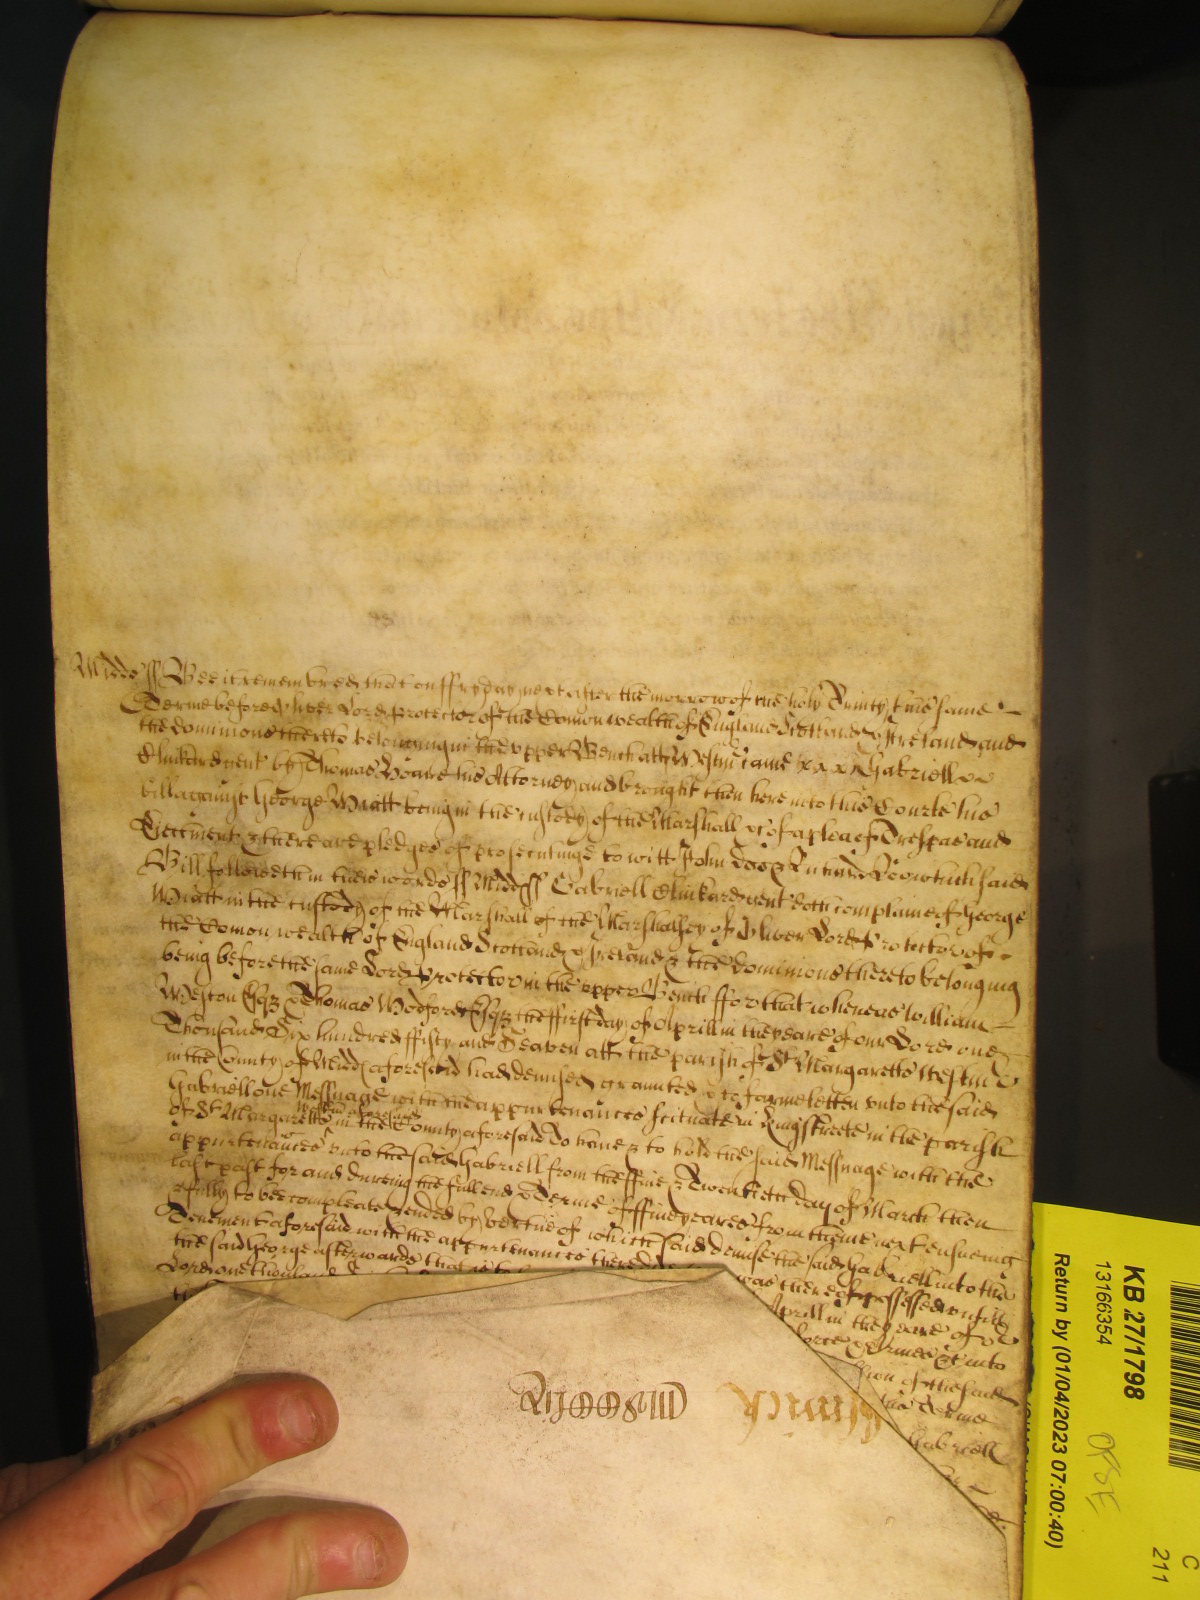 Midds ss Bee it remembred that on ffryday next after the morrow of the holy Trinity this same
Terme before Oliver Lord Protector of the Comon wealth of England Scotland & Ireland and
the dominions thereto belonging in the upper Bench att Westm came Gabriell
Clinkard gent by Thomas Hoare his Attorney and brought then here into this Courte his
bill against George Wiatt being in the custody of the Marshall &c of a plea of Trespas and
Eectment & there are pledges of prosecuting to witt John Doo & Richard Roo which said
Bill followeth in theis words ss Midds ss Gabriell Clinkard gent doth complaine of George
Wiatt in the custody of the Marshall of the Marshalsey of Oliver Lord Protector of
the Comon wealth of England Scotland & Ireland & the dominions thereto belonging
being before the same Lord Protector in the upper Bench ffor that whereas William
Weston Esqr & Thomas Wodford Esqr the ffirst day of Aprill in the yeare of our Lord one
Thousand Six hundred ffifty and Seaven att the parish of St Margaretts Westm
in the County of Midd aforesaid had demised graunted & to farme letten unto the said
Gabriell one Messuage with the appurtenances scituate in Kingstreete in the parish
of St Margaretts Westm aforesaid in the County aforesaid To have & to hold the said Messuage with the
appurtenances unto the said Gabriell from the ffive & Twentieth day of March then
last past for and dureing the full end & Terme of ffive yeares from thence next ensueing
& fully to bee compleate & ended by vertue of which said demise the said Gabriell into the
Tenement aforesaid with the appurtenances there was thereof possessed untill
the said George afterwards that is to Aprill in the yeare of
Lord one thousand force & Armes &c into
sion of the said
his Terme
Gabriell
KB 27/1798
13166354
Return by (01/04/2023 07:00:40)
C
211